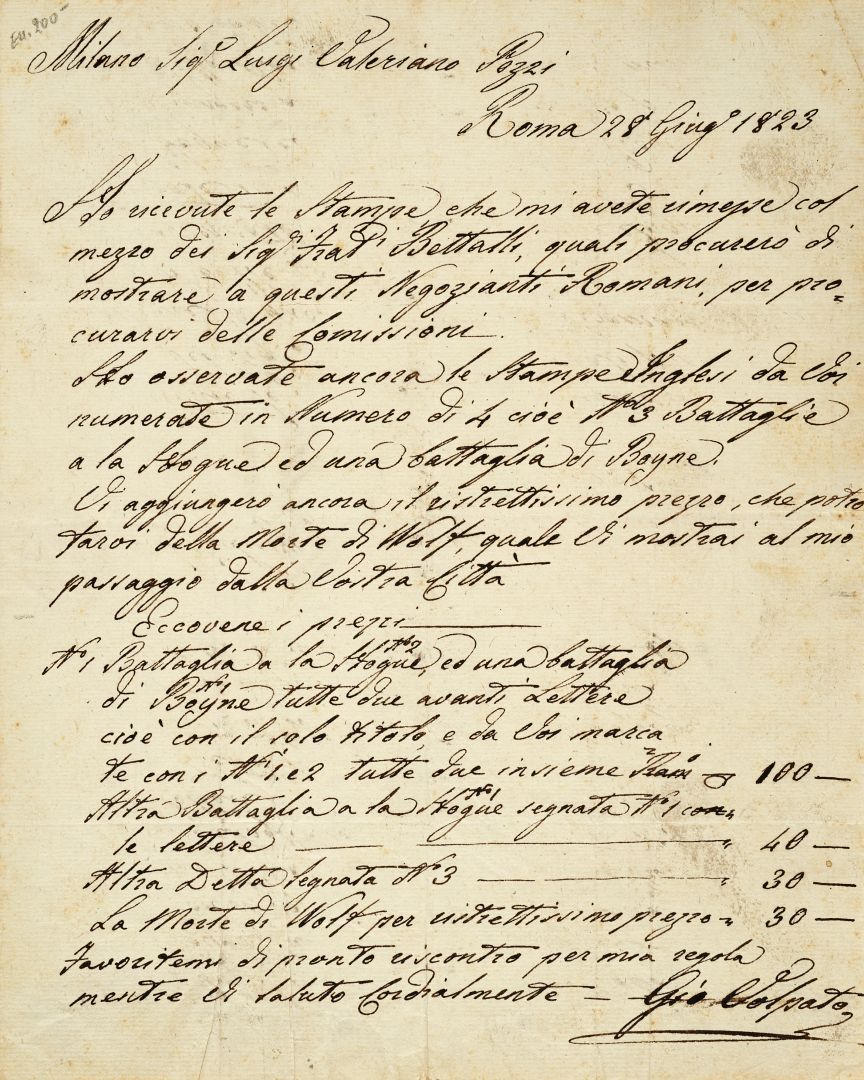 Eu. 200-
Milano Sigr Luigi Valeriano Pozzi
Roma 28 Giugo 1823
Ho ricevute le Stampe, che mi avete rimesse col
mezzo dei Sigri Fratelli Bettalli, quali procurerò di
mostrare a questi Negozianti Romani, per pro=
curarvi delle Comissioni.
Ho osservate ancora le Stampe Inglesi da Voi
numerate in Numero di 4 cioè No 3 Battaglie
a la Hogue, ed una battaglia di Boyne.
Vi aggiungerò ancora il ristrettissimo prezzo, che potrò
farvi della Morte di Wolf, quale Vi mostrai al mio
passaggio dalla Vostra Città
Eccovene i prezzi
No 1 Battaglia a la Hogue No 2, ed una battaglia
di Boyne No 1 tutte due avanti Lettere
cioè con il solo titolo, e da Voi marca
te con i Ni 1. e 2 tutte due insieme 100 —
Altra Battaglia a la Hogue No 1 segnata No 1 con
le lettere — " 40 —
Altra Detta segnata No 3 — " 30 —
La Morte di Wolf per ristrettissimo prezzo " 30 —
Favoritemi di pronto riscontro per mia regola
mentre Vi saluto Cordialmente — Gio Volpato